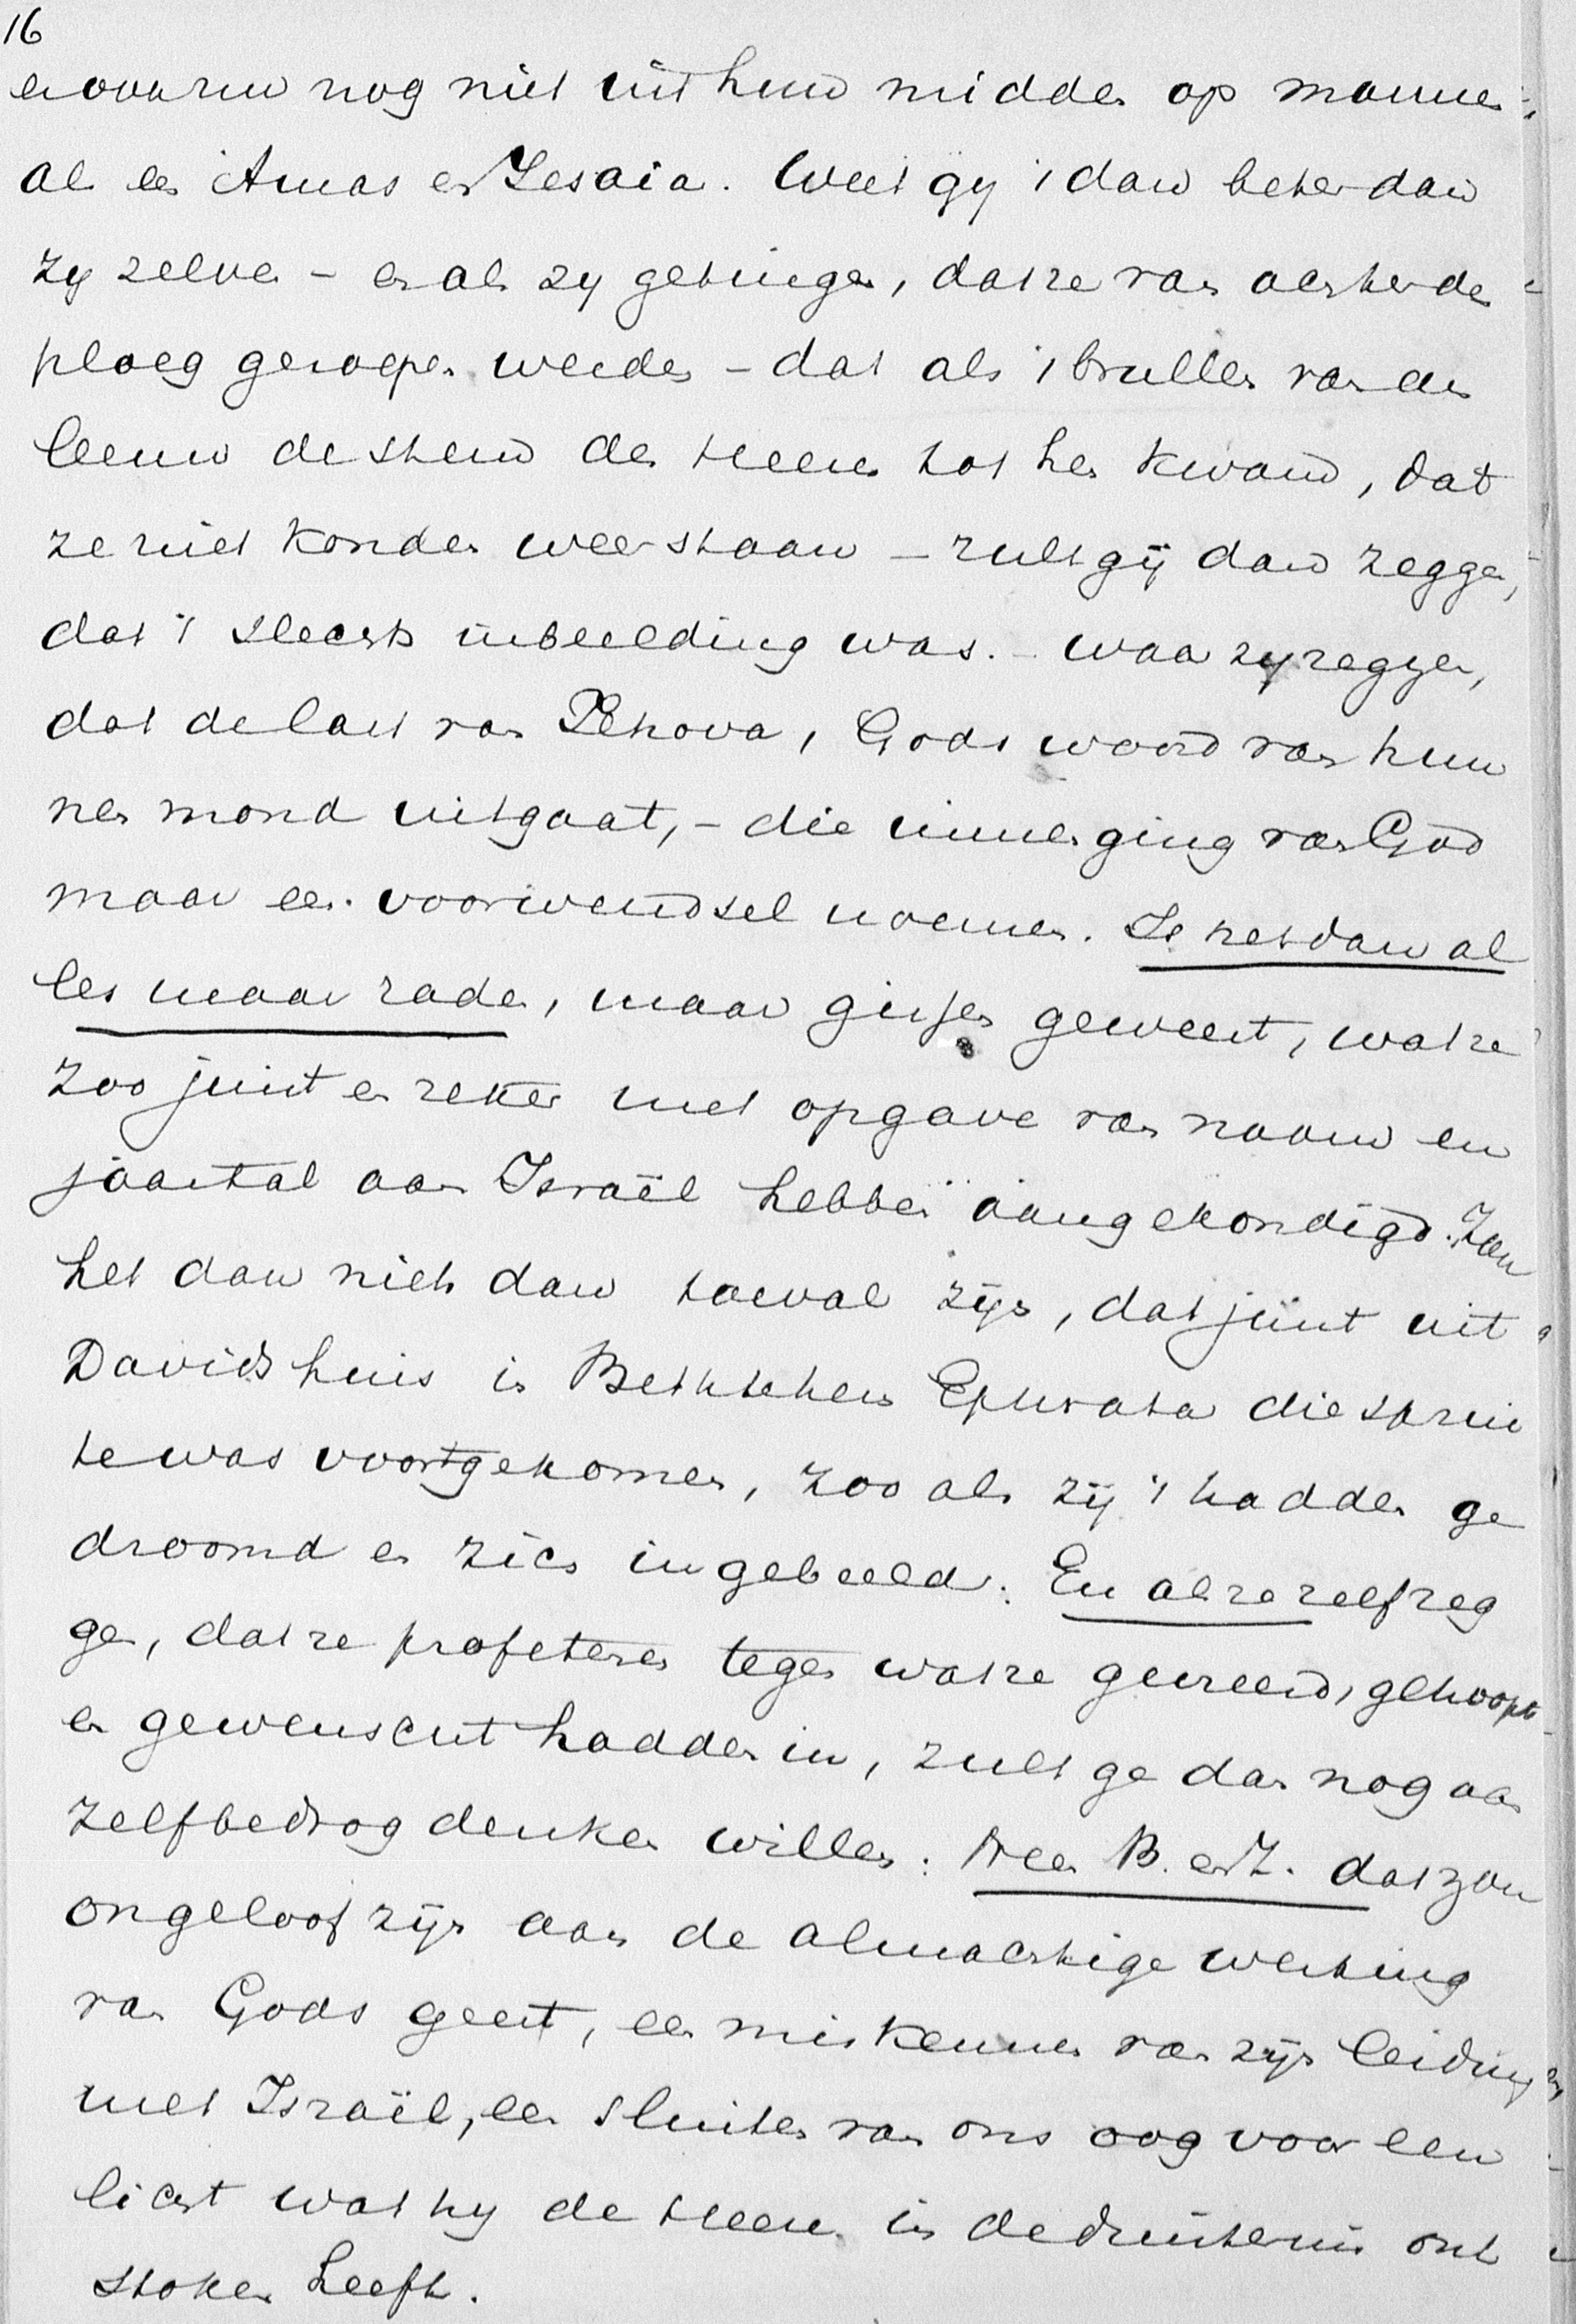 16
en waren nog niet uit hun midden op mannen
als een Amos en Jesaia. Weet gy 't dan beter dan
zy zelven – en als zy getuigen, dat ze van achter de
ploeg geroepen werden – dat als 't brullen van den
leeuw de stem des Heeren tot hen kwam, dat
ze niet konden weerstaan – zult gij dan zeggen,
dat 't slechts inbeelding was. – waar zy zeggen,
dat de last van Jehova, Gods woord van hun
nen mond uitgaat, – die inwerging van God
maar een voorwendsel noemen. Is het dan al
les maar raden, maar gissen geweest, wat ze
zoo juist en zeker met opgave van naam en
jaartal aan Israël hebben aangekondigd. Zou
het dan niets dan toeval zijn, dat juist uit
Davids huis in Bethlehem Ephrata die sprui
te was voortgekomen, zoo als zij 't hadden ge
droomd en zich ingebeeld. En als ze zelf zeg
gen, dat ze profeteren tegen wat ze gevreesd, gehoopt
en gewenscht hadden in, zult ge dan nog aan
zelfbedrog denken willen. Neen B. en Z. dat zou
ongeloof zijn aan de almachtige werking
van Gods geest, een miskennen van zijn leidingen
met Israël, een sluiten van ons oog voor een
licht wat hy de Heere in de duisternis ont
stoken heeft.